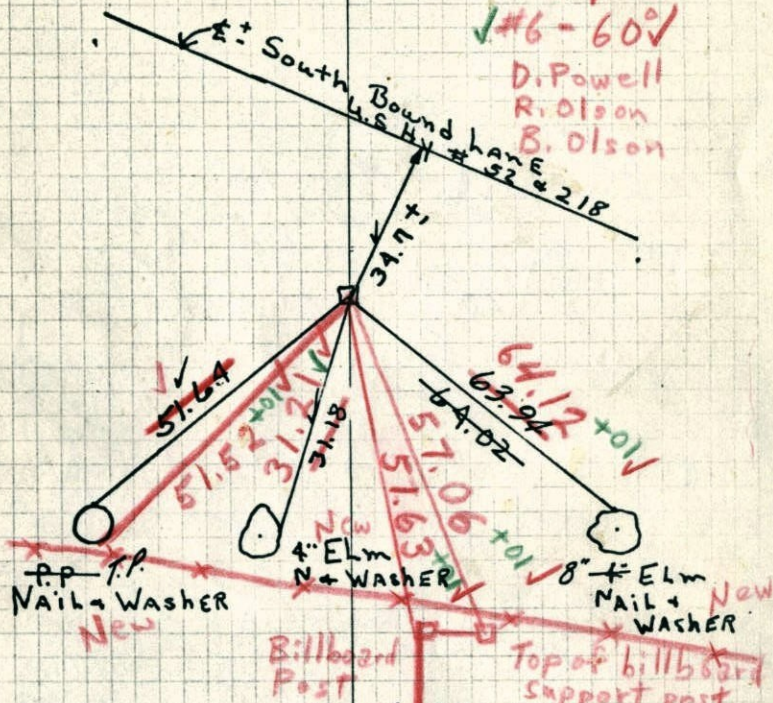 ✓#6 - 60°✓
D. Powell
R. Olson
B. Olson
℄± South Bound Lane
U.S. Hy # 52 & 218
34.7±'
51.64
51.52 +01
31.21
31.18
51.63 +01
57.06 +01
64.12 +01
63.94
64.02
P.P. T.P.
NAIL & WASHER
New
New
4" ELm
N & WASHER
8" ELm
NAIL &
WASHER
New
Billboard
Post
Top of billboard
support post